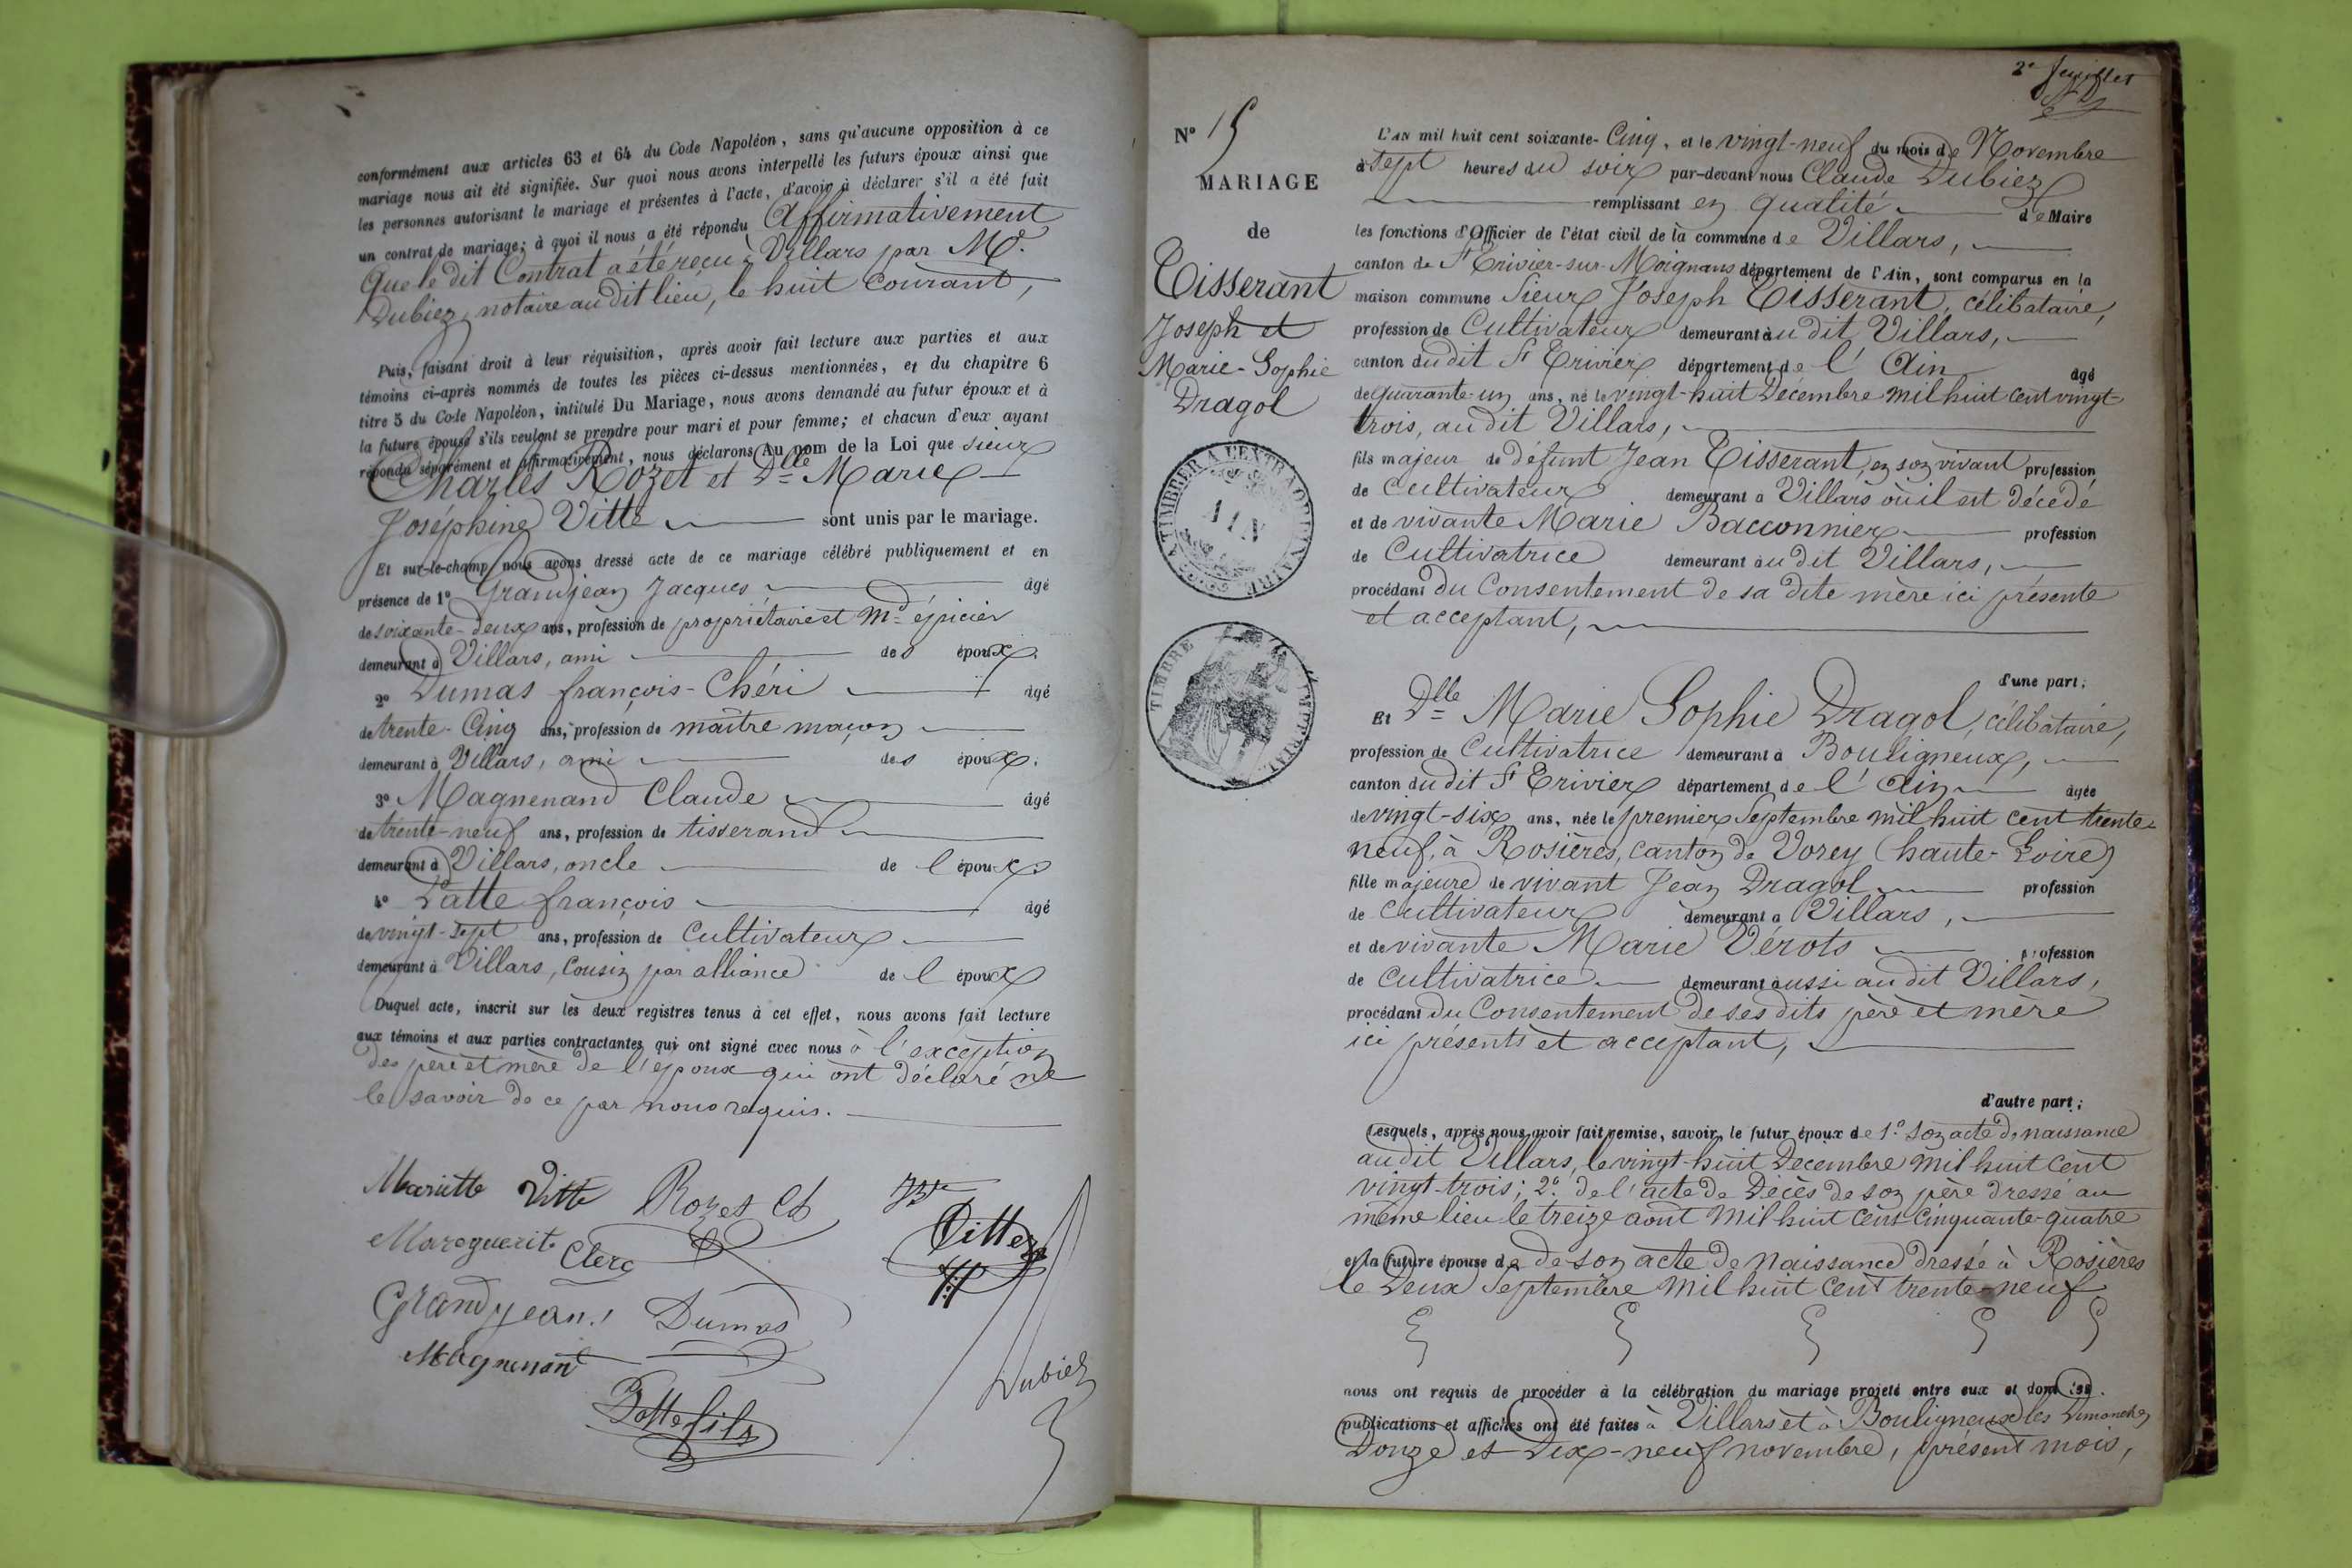 conformément aux articles 63 et 64 du Code Napoléon, sans qu'aucune opposition à ce
mariage nous ait été signifiée. Sur quoi nous avons interpellé les futurs époux ainsi que
les personnes autorisant le mariage et présentes à l'acte, d'avoir à déclarer s'il a été fait
un contrat de mariage; à quoi il nous a été répondu Affirmativement
Que le dit Contrat a été reçu à Villars par Me.
Dubiez notaire au dit lieu, le huit Courant,
Puis, faisant droit à leur réquisition, après avoir fait lecture aux parties et aux
témoins ci-après nommés de toutes les pièces ci-dessus mentionnées, et du chapitre 6
titre 5 du Code Napoléon, intitulé Du Mariage, nous avons demandé au futur époux et à
la future épouse s'ils veulent se prendre pour mari et pour femme; et chacun d'eux ayant
répondu séparément et affirmativement, nous déclarons Au nom de la Loi que sieur
Charles Rozet et Dlle Marie
Joséphine Vitte sont unis par le mariage.
Et sur-le-champ nous avons dressé acte de ce mariage célébré publiquement et en
présence de 1° Grandjean Jacques âgé
de soixante-deux ans, profession de propriétaire et Md épicier
demeurant à Villars, ami des époux.
2° Dumas françois-Chéri âgé
de trente-Cinq ans, profession de maître maçon
demeurant à Villars, ami des époux.
3° Magnenand Claude âgé
de trente-neuf ans, profession de tisserand
demeurant à Villars, oncle de l époux.
4° Patte françois âgé
de vingt-sept ans, profession de Cultivateur
demeurant à Villars, Cousin par alliance de l époux
Duquel acte, inscrit sur les deux registres tenus à cet effet, nous avons fait lecture
aux témoins et aux parties contractantes qui ont signé avec nous à l'exception
des père et mère de l'époux qui ont déclaré ne
le savoir de ce par nous requis.
Mariette Vitte Rozet Ch
Vittez
Marguerit Clerc
Grandjean. Dumas
Magnenant
Dubiez
Patte fils
2e feuillet
N° 15
MARIAGE
de
Tisserant
Joseph et
Marie-Sophie
Dragol
A TIMBRER A L'EXTRAORDINAIRE
AIN
TIMBRE IMPERIAL
L'AN mil huit cent soixante-Cinq, et le vingt-neuf du mois de Novembre
à sept heures du soir par-devant nous Claude Dubiez
remplissant en qualité de Maire
les fonctions d'Officier de l'état civil de la commune de Villars,
canton de St Trivier-sur-Moignans département de l'Ain, sont comparus en la
maison commune Sieur Joseph Tisserant, célibataire,
profession de Cultivateur demeurant au dit Villars,
canton du dit St Trivier département de l'Ain âgé
de quarante-un ans, né le vingt-huit Décembre mil huit cent vingt-
trois, au dit Villars,
fils majeur de défunt Jean Tisserant, en son vivant profession
de Cultivateur demeurant à Villars où il est décédé
et de vivante Marie Bacconnier profession
de Cultivatrice demeurant au dit Villars,
procédant du Consentement de sa dite mère ici présente
et acceptant,
d'une part;
Et Dlle Marie Sophie Dragol, célibataire,
profession de Cultivatrice demeurant à Bouligneux,
canton du dit St Trivier département de l'Ain âgée
de vingt-six ans, née le premier Septembre mil huit cent trente-
neuf, à Rosières, canton de Vorey (haute-Loire)
fille majeure de vivant Jean Dragol profession
de Cultivateur demeurant à Villars,
et de vivante Marie Vérots profession
de Cultivatrice demeurant aussi au dit Villars,
procédant du Consentement de ses dits père et mère
ici présents et acceptant,
d'autre part;
Lesquels, après nous avoir fait remise, savoir, le futur époux de 1° son acte de naissance
au dit Villars, le vingt-huit Décembre mil huit cent
vingt-trois; 2° de l'acte de Décès de son père dressé au
même lieu le treize août mil huit cent cinquante-quatre
et la future épouse de de son acte de Naissance dressé à Rosières
le Deux Septembre mil huit cent trente-neuf
nous ont requis de procéder à la célébration du mariage projeté entre eux et dont les
publications et affiches ont été faites à Villars et à Bouligneux les Dimanches
Douze et Dix-neuf novembre, présent mois,